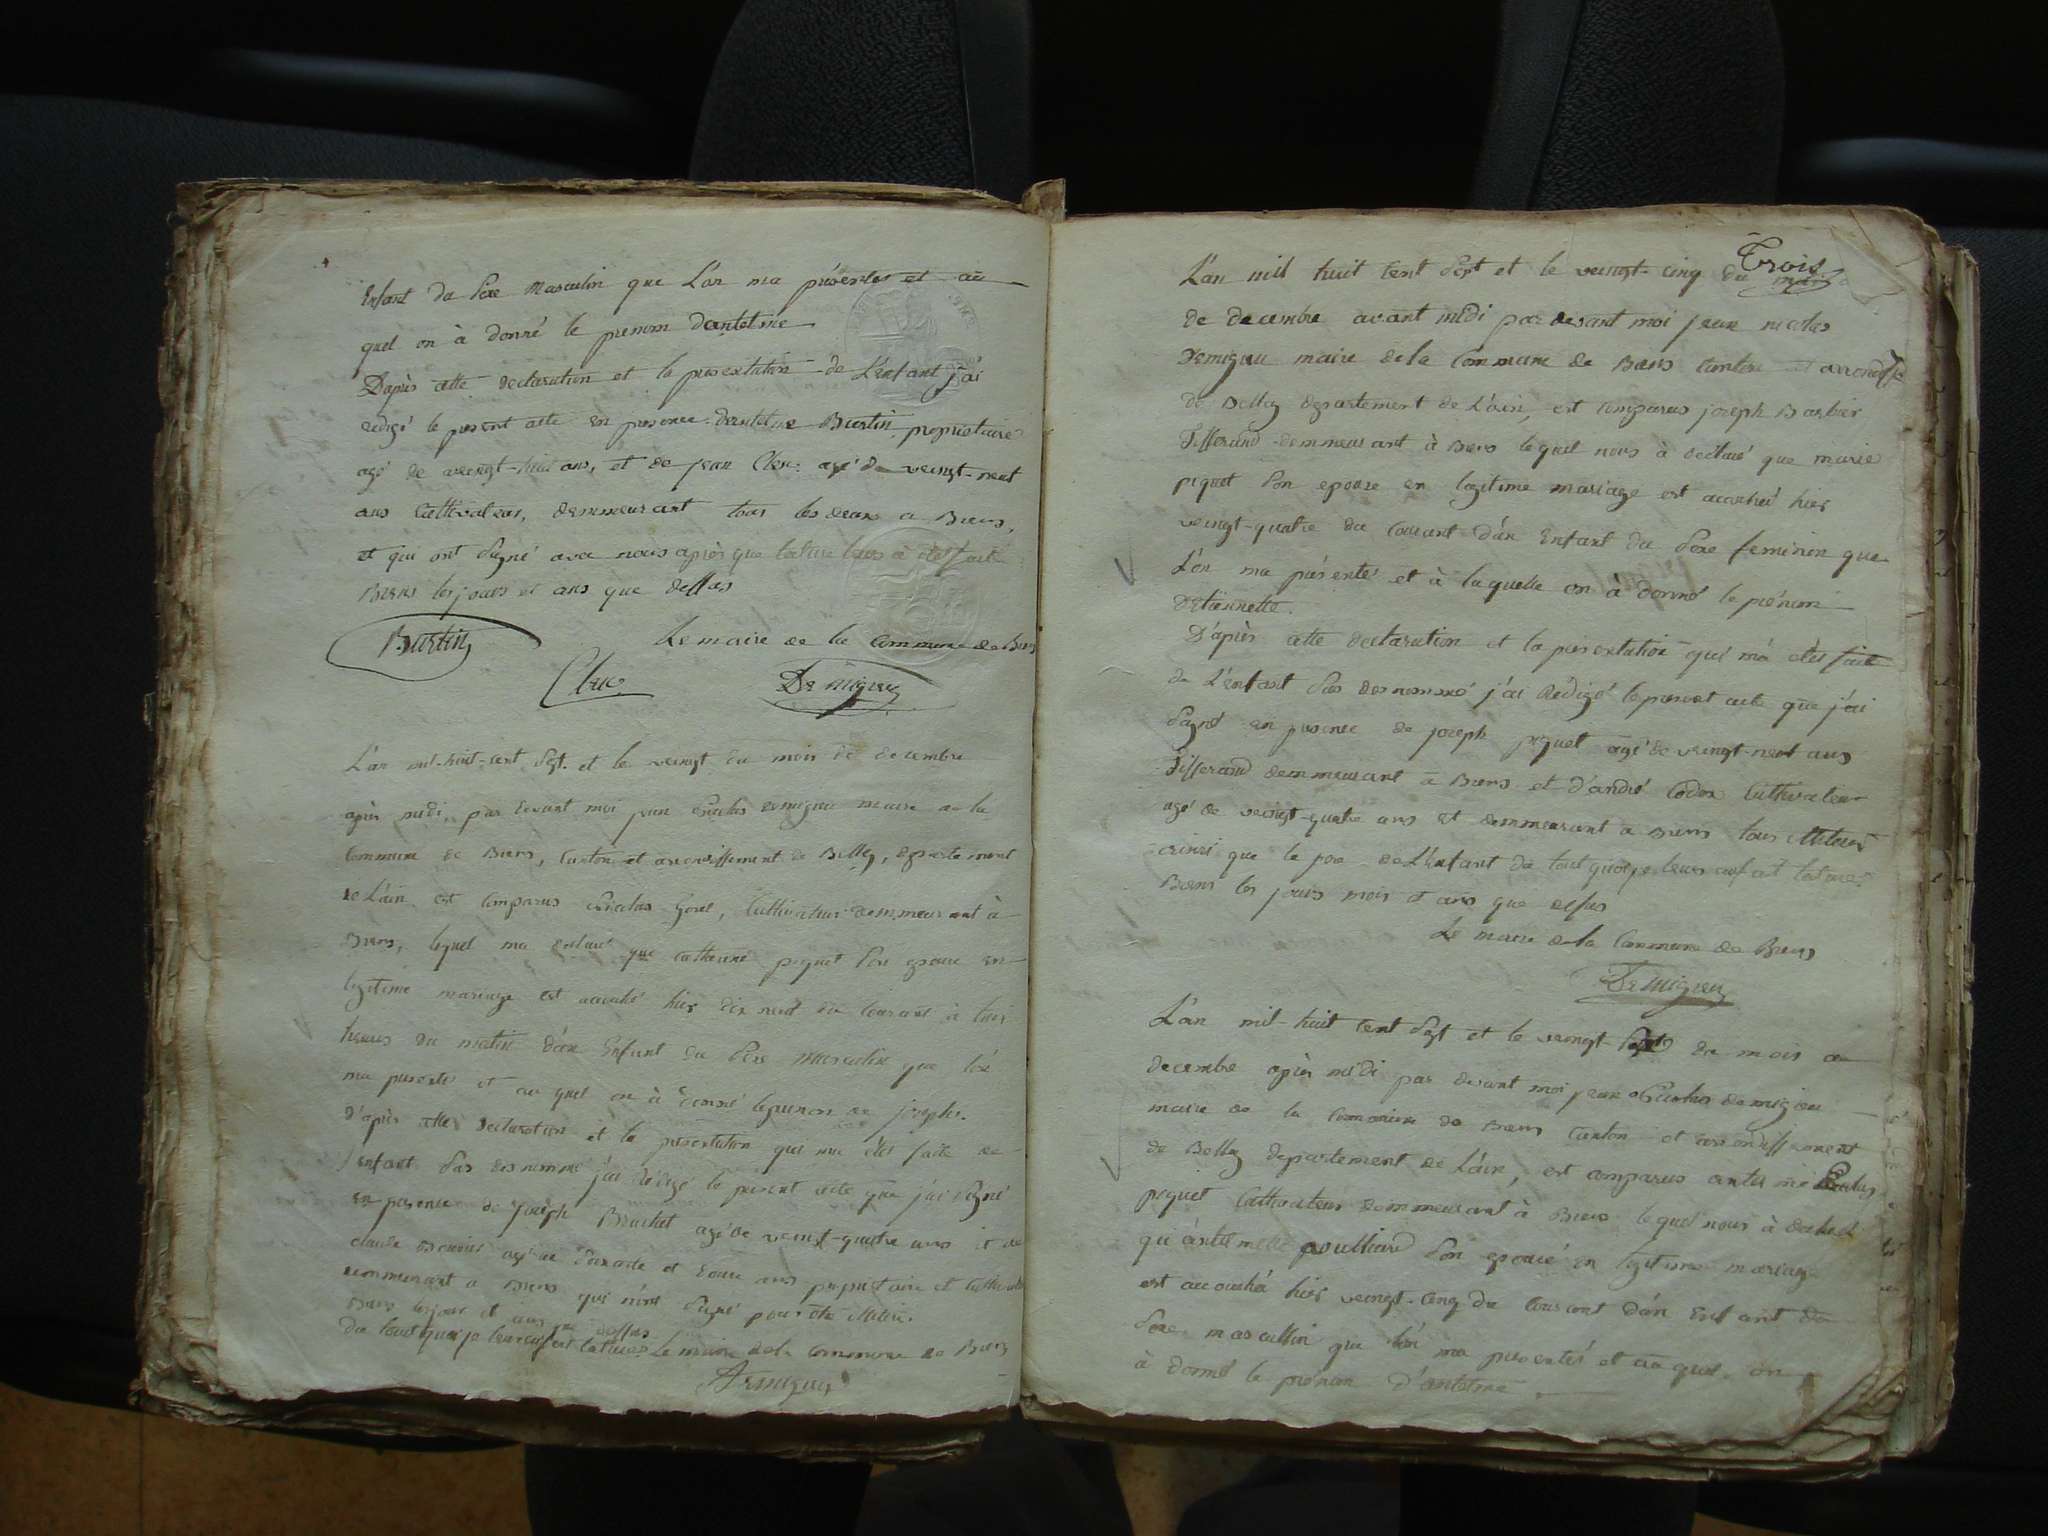 Enfant du Sexe Masculin que L'on ma présentés et au
quel on à donné le prenom dantelme
Daprès cette declaration et la presentation de L'enfant j'ai
redigé le present acte en presence dantelme Burtin propriétaire
agé de veingt-huit ans, et de jean Clerc agé de veingt-neuf
ans Cultivateur, demmeurant tous les deux a Brens,
et qui ont Signé avec nous après que lecture leurs à étés fait
Brens les jours et ans que dessus
Burtin Le maire de la Commune de Brens
Clerc Demigieu
L'an mil-huit-cent Sept. et le veingt du mois de decembre
après midi, par devant moi jean Nicolas demigieu maire de la
Commune de Brens, Canton et arondissement de Belley, departement
de L'ain est Comparus Nicolas Gorel, Cultivateur demmeurant à
Brens, lequel ma declaré que Catherine piquet Son epouse en
legitime mariage est accouché hier dix neuf du Courant à
heures du matin d'un Enfant du Sexe Masculin que l'on
ma presentés et au quel on à donné le prenom de joseph.
D'après cette declaration et la presentation qui ma étés faite de
l'enfant Sus denommé j'ai redigé le present acte que j'ai signé
en presence de joseph Brachet agé de veingt-quatre ans et de
claude agé de Soixante et douze ans propriétaire et Cultivateur
demmeurant a Brens qui n'ont Signé pour être illitéré.
Brens les jour et ans que dessus
du tout quoi je leurs ai fait lecture. Le maire de la commune de Brens
Demigieu
Trois
L'an mil huit Cent Sept et le veingt-cinq du mois
de decembre avant midi par devant moi jean nicolas
Demigieu maire de la Commune de Brens Canton et arrondisse
de Belley departement de L'ain, est Comparus joseph Barbier
Tisserand demmeurant à Brens lequel nous à declaré que marie
piquet Son epouse en legitime mariage est accouché hier
veingt-quatre du Courant d'un Enfant du Sexe feminin que
L'on ma présentés et à laquelle on à donné le prénom
detiennette.
D'après cette declaration et la presentation qui m'a étés faite
de L'enfant Sus denommé j'ai Rédigé le present acte que j'ai
Signé en presence de joseph piquet agé de veingt-neuf ans
Tisserand demmeurant à Brens et d'andré Codex Cultivateur
agé de veingt-quatre ans et demmeurant a Brens tous illitérés
ainsi que le pere de L'enfant du tout quoi je leurs ai fait lecture.
Brens les jours mois et ans que dessus
Le maire de la Commune de Brens
Demigieu
L'an mil-huit Cent Sept et le veingt-Sept du mois de
decembre après midi par devant moi jean Nicolas demigieu
maire de la Commune de Brens Canton et arrondissement
de Belley departement de L'ain, est comparus antelme
piquet Cultivateur demmeurant à Brens lequel nous à declaré
qu'antelmette poulliard Son epouse en legitime mariage
est accouché hier veingt-cinq du Courant d'un Enfant du
Sexe mascullin que l'on ma presentés et au quel on
à donné le prénom d'antelme